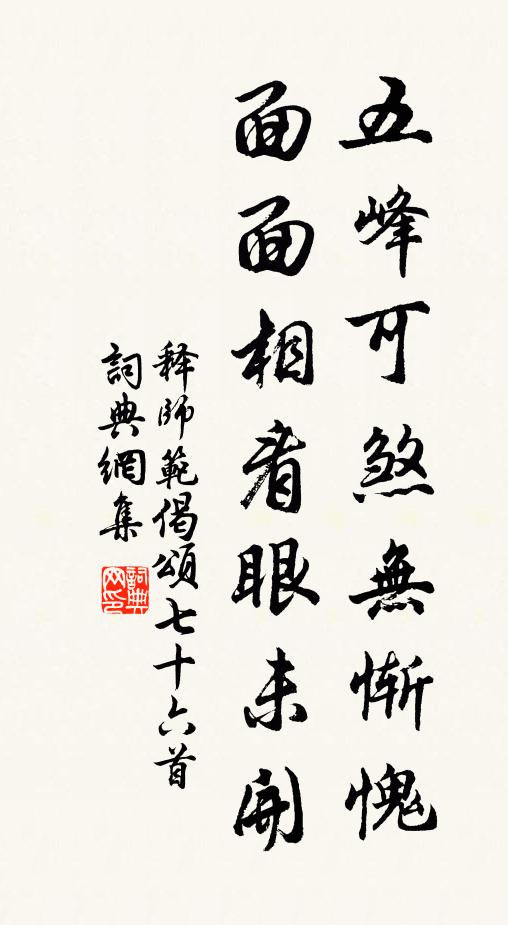 五峰可煞無慚愧
面面相看眼未開
释師範偈頌七十六首
詞典網集
詞典網印